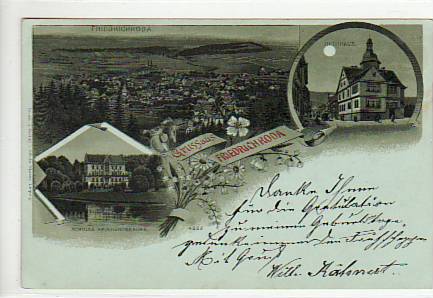 FRIEDRICHRODA
RATHHAUS
Gruss aus
FRIEDRICHRODA
SCHLOSS REINHARDSBRUNN
4222
Danke Ihnen
für die Gratulation
zu meinem Geburtstage
der
Mit Gruß
Wilh. Kähnert.